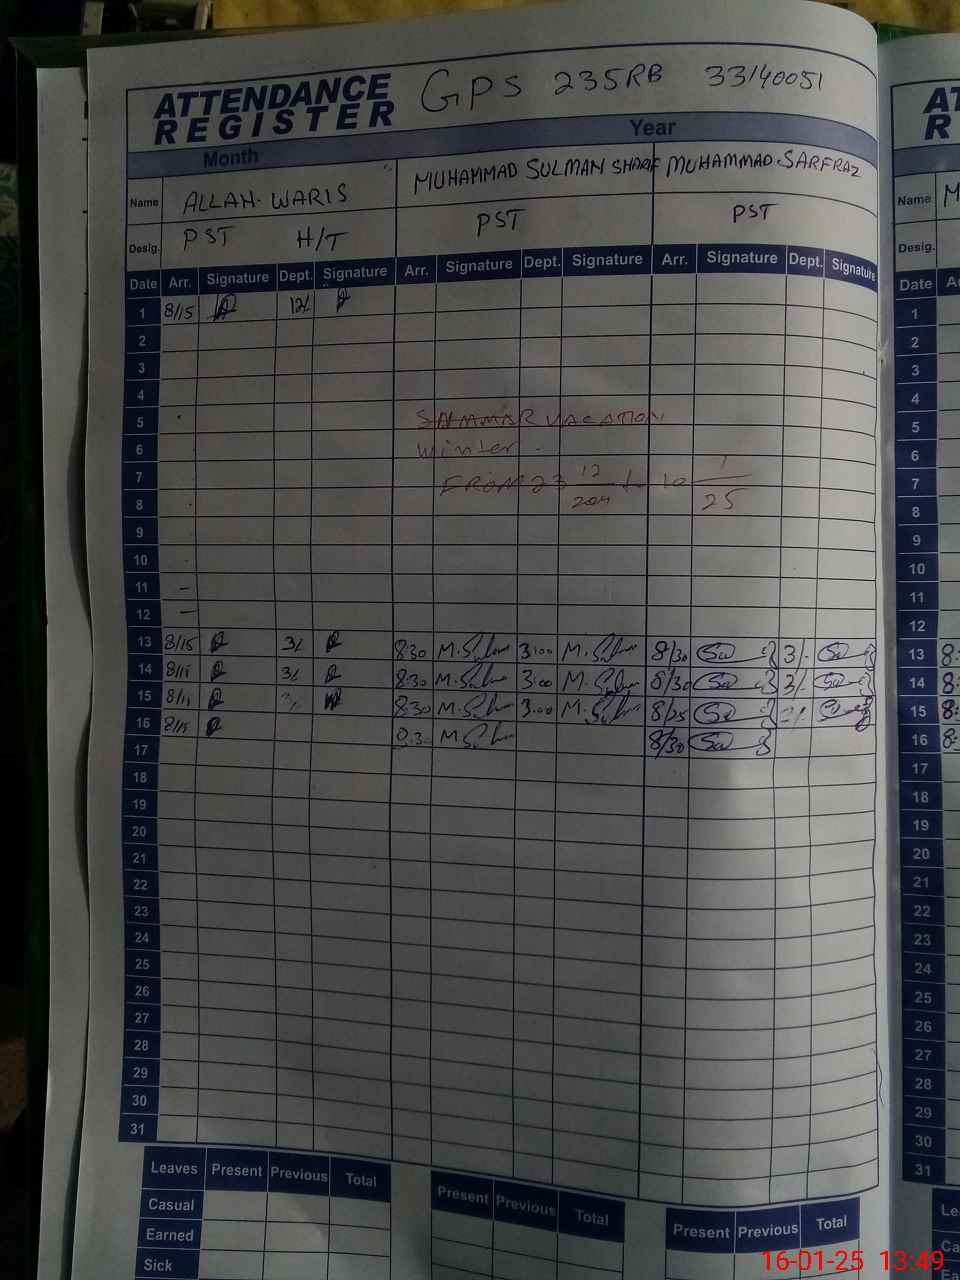 ATTENDANCE REGISTER GPS 235RB 33140051
Month Year
Name ALLAH. WARIS MUHAMMAD SULMAN SHARIF MUHAMMAD. SARFRAZ Name M
Desig. PST H/T PST PST Desig.
Date Arr. Signature Dept. Signature Arr. Signature Dept. Signature Arr. Signature Dept. Signature Date
1 8/15 12/ 1
2 2
3 3
4 4
5 VACATION 5
6 Winter. 6
7 FROM 23 12/2024 10 1/25 7
8 8
9 9
10 10
11 – 11
12 – 12
13 8/15 3/ 8:30 3:00 8/30 3/- 13 8:
14 3/ 8:30 3:00 8/30 3/- 14 8:
15 8:30 3:00 8/25 15 8:
16 8/15 8/30 16 8:
17 17
18 18
19 19
20 20
21 21
22 22
23 23
24 24
25 25
26 26
27 27
28 28
29 29
30 30
31 31
Leaves Present Previous Total Present Previous Total Present Previous Total Le
Casual Ca
Earned
Sick
16-01-25 13:49